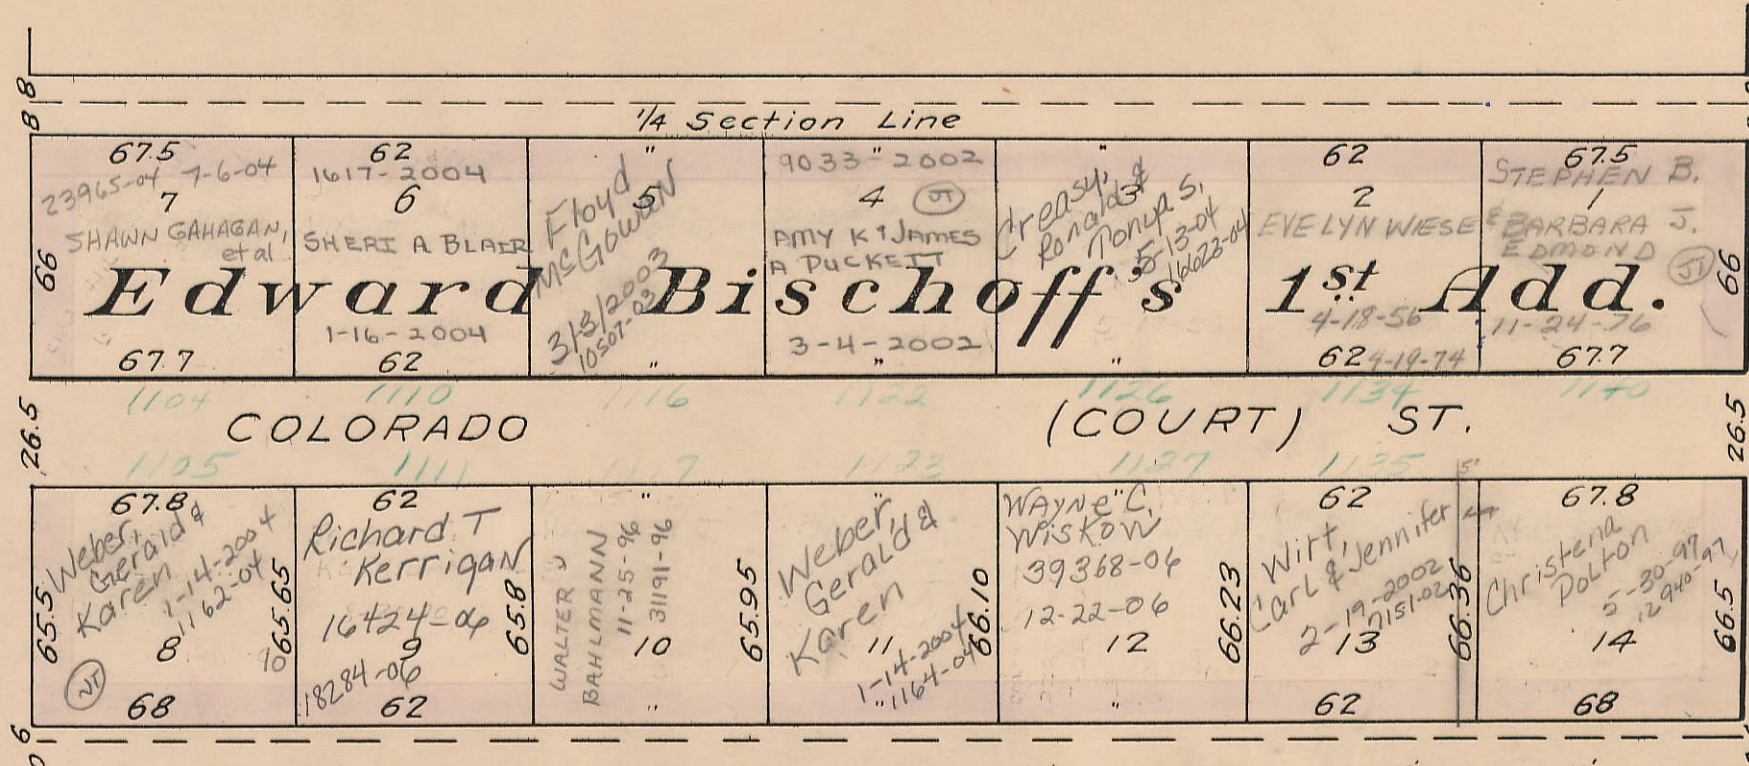 8
8
1/4 Section Line
67.5
23965-04 7-6-04
7
SHAWN GAHAGAN,
et al
66
67.7
62
1617-2004
6
SHERI A BLAIR
1-16-2004
62
"
5
Floyd
McGowan
3/3/2003
10507-03
"
"
9033-2002
4 JT
AMY K & JAMES
A PUCKETT
3-4-2002
"
"
3
Creasy,
Ronald &
Tonya S.
5-13-04
16623-04
"
62
2
EVELYN WIESE
4-18-56
62 4-19-74
67.5
STEPHEN B.
1
& BARBARA J.
EDMOND
JT
66
11-24-76
67.7
Edward Bischoff's 1st Add.
1104 1110 1116 1122 1126 1134 1140
26.5 COLORADO (COURT) ST. 26.5
1105 1111 1117 1123 1127 1135
5'
67.8
Weber,
Gerald &
Karen
1-14-2004
1162-04
65.5
8
JT
65.65
68
62
Richard T
Kerrigan
16424-06
9
18284-06
65.8
62
"
WALTER J
BAHLMANN
11-25-96
31191-96
10
65.95
"
"
Weber,
Gerald &
Karen
11
1-14-2004
1164-04
66.10
"
"
WAYNE C.
WISKOW
39368-06
12-22-06
12
66.23
"
62
Wirt,
Carl & Jennifer
2-19-2002
7151-02
13
66.36
62
67.8
Christena
Dolton
5-30-97
12940-97
14
66.5
68
6